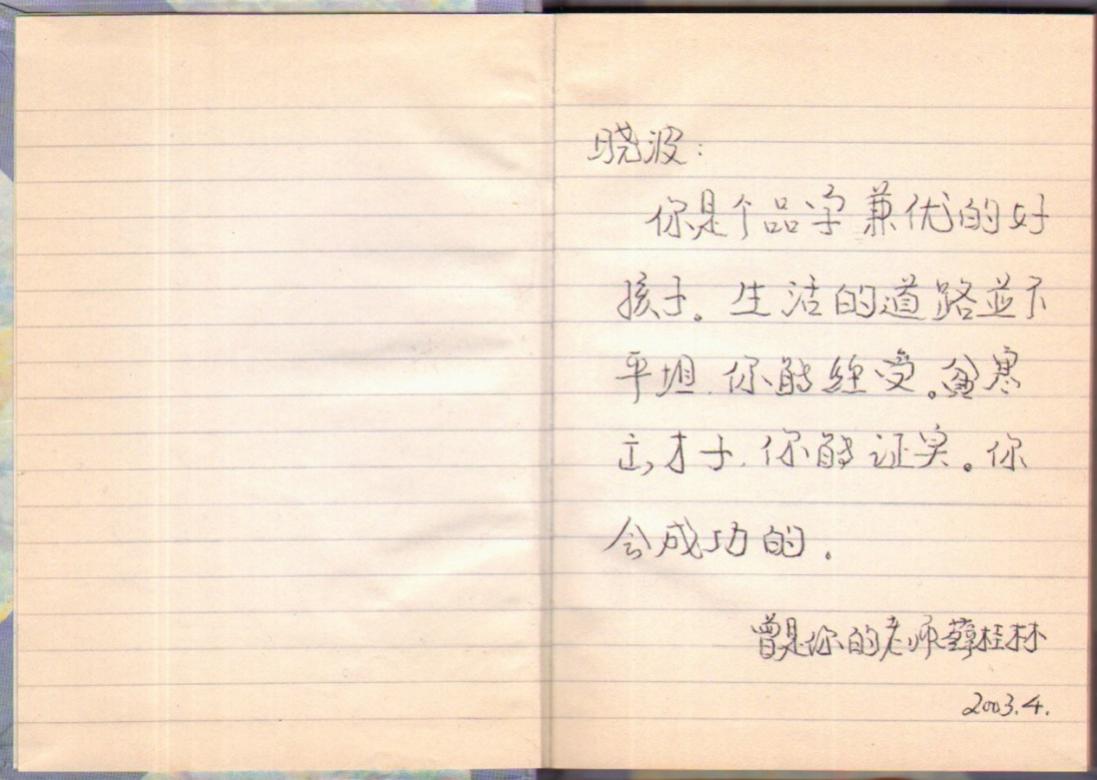 晓波：
你是个品学兼优的好
孩子。生活的道路並不
平坦，你能经受。贫寒
出才子，你能证实。你
会成功的。
曾是你的老师 桂林
2003.4.